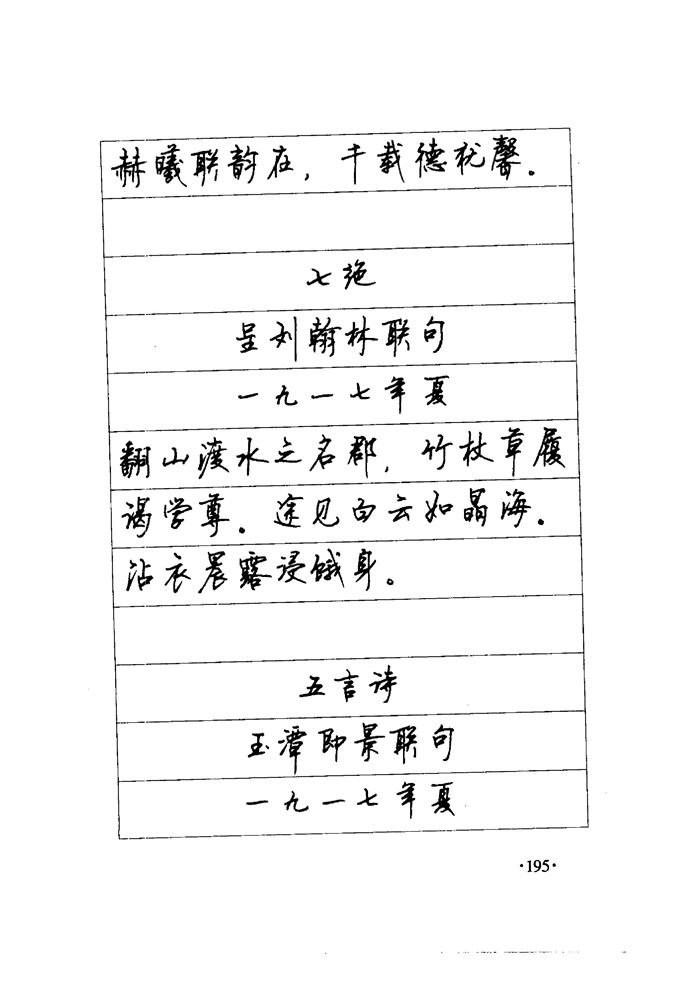 赫曦联韵在，千载德犹馨．
七绝
呈刘翰林联句
一九一七年夏
翻山渡水之名郡，竹杖草履
谒学尊．途见白云如晶海．
沾衣晨露浸饿身。
五言诗
玉潭即景联句
一九一七年夏
·195·